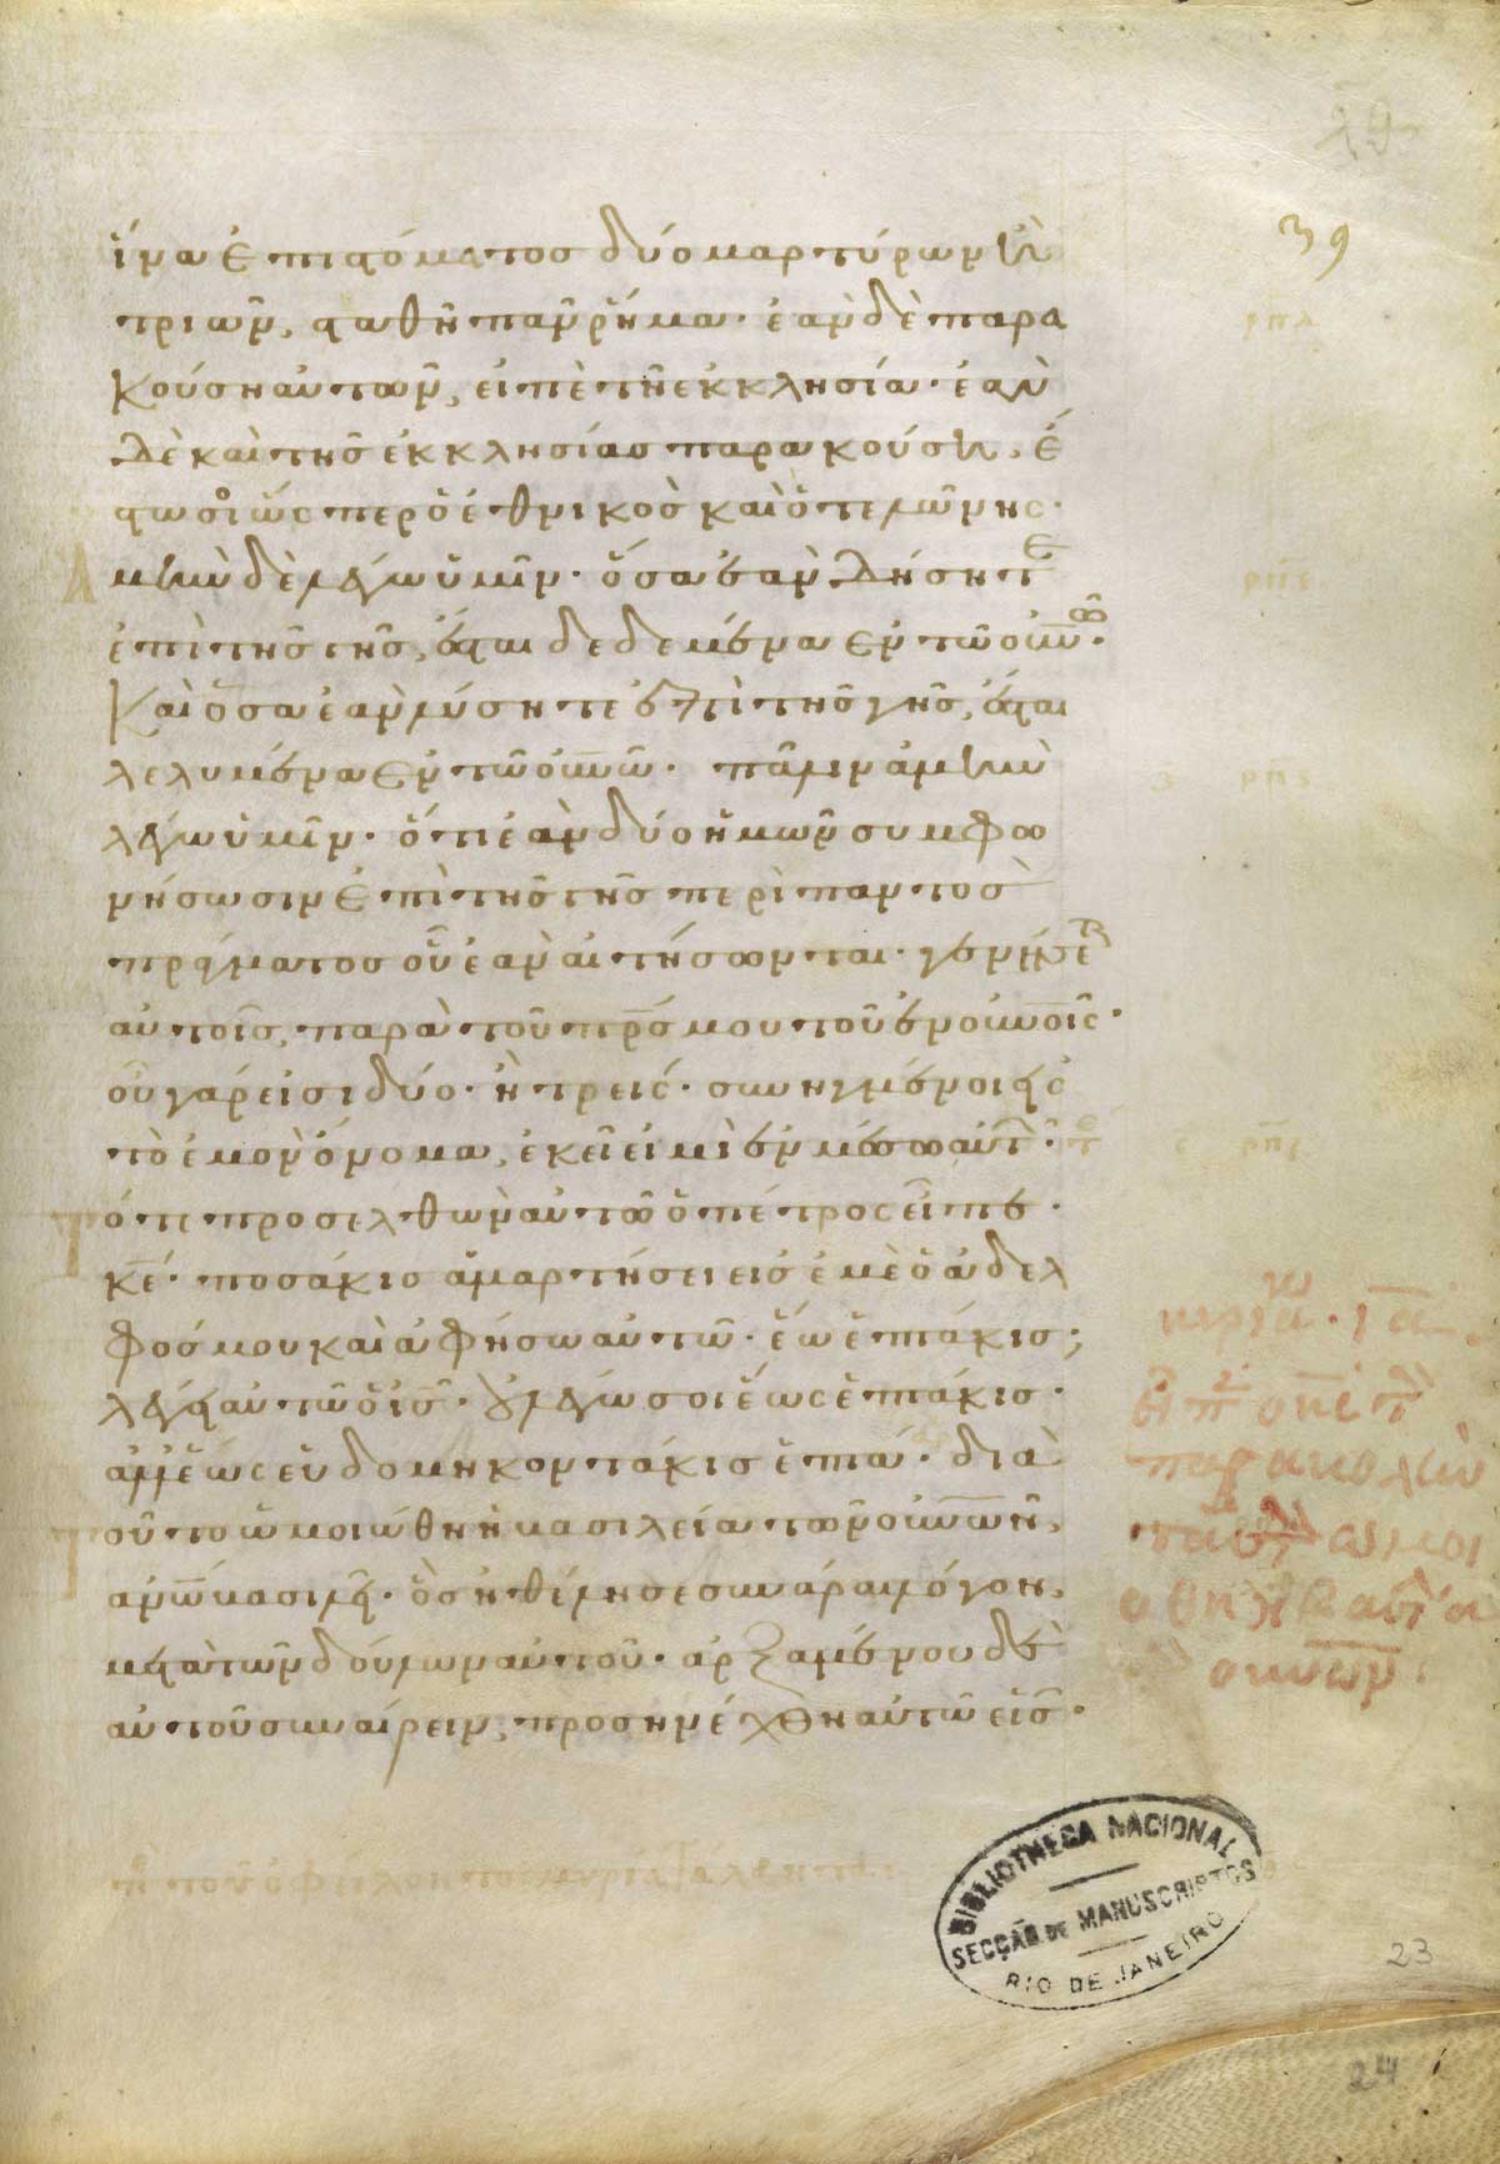 39
ἵνα ἐπὶ στόματος δύο μαρτύρων ἢ
τριῶν, σταθῆ πᾶν ῥῆμα· ἐὰν δὲ παρα
κούση αὐτῶν, εἰπὲ τῆ ἐκκλησία· ἐὰν
δὲ καὶ τῆς ἐκκλησίας παρακούση, ἔ
στω σοι ὥσπερ ὁ ἐθνικὸς καὶ ὁ τελώνης·
Ἀμὴν δὲ λέγω ὑμῖν· ὅσα ἐὰν δήσητε
ἐπὶ τῆς γῆς, ἔσται δεδεμένα ἐν τῶ οὐνῶ·
καὶ ὅσα ἐὰν λύσητε ἐπὶ τῆς γῆς, ἔσται
λελυμένα ἐν τῶ οὐνῶ· πάλιν ἀμὴν
λέγω ὑμῖν· ὅτι ἐὰν δύο ἡμῶν συμφω
νήσωσιν ἐπὶ τῆς γῆς περὶ παντὸς
πράγματος οὗ ἐὰν αἰτήσωνται· γενήσεται
αὐτοῖς, παρὰ τοῦ πρσ μου τοῦ ἐν οὐνοῖς·
οὗ γάρ εἰσι δύο· ἢ τρεῖς· συνηγμένοι εἰς
τὸ ἐμὸν ὄνομα, ἐκεῖ εἰμὶ ἐν μέσω αὐτῶν·
Τότε προσελθὼν αὐτῶ ὁ πέτρος εἶπε·
κε· ποσάκις ἁμαρτήσει εἰς ἐμὲ ὁ ἀδελ
φός μου καὶ ἀφήσω αὐτῶ· ἕω ἑπτάκις;
λέγει αὐτῶ ὁ ις· οὐ λέγω σοι ἕως ἑπτάκις·
ἀλλ' ἕως εὑδομηκοντάκις ἑπτά· διὰ
Τοῦτο ὡμοιώθη ἡ βασιλεία τῶν οὐνῶν,
ἀνω βασιλεῖ· ὃς ἠθέλησε συνάραι λόγον,
μετὰ τῶν δούλων αὐτοῦ· ἀρξαμένου δὲ
αὐτοῦ συναίρειν, προσηνέχθη αὐτῶ εἷς·
BIBLIOTHECA NACIONAL
SECÇÃO DE MANUSCRIPTOS
RIO DE JANEIRO
23
24